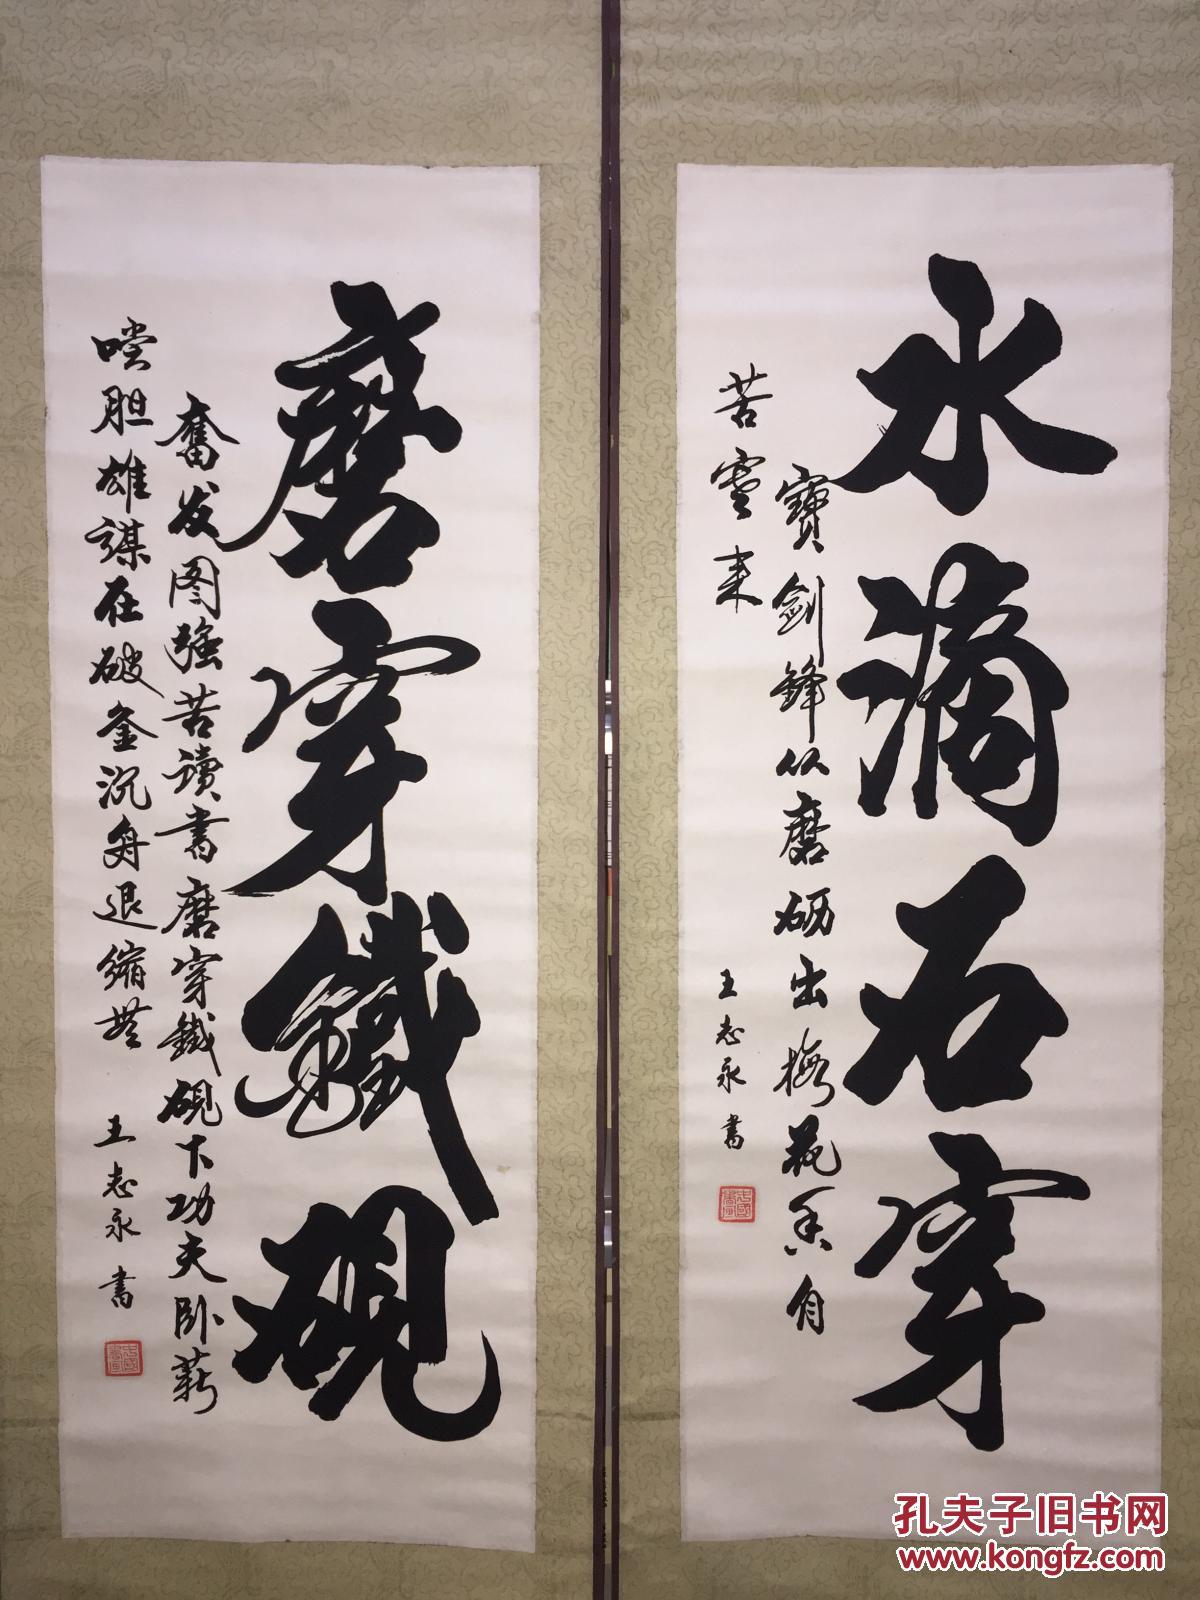 水滴石穿
寶劍鋒从磨砺出梅花香自
苦寒来
王志永書
磨穿鐵硯
奮发图強苦读書磨穿鐵硯下功夫卧薪
嘗胆雄謀在破釜沉舟退缩無
王志永書
孔夫子旧书网
www.kongfz.com